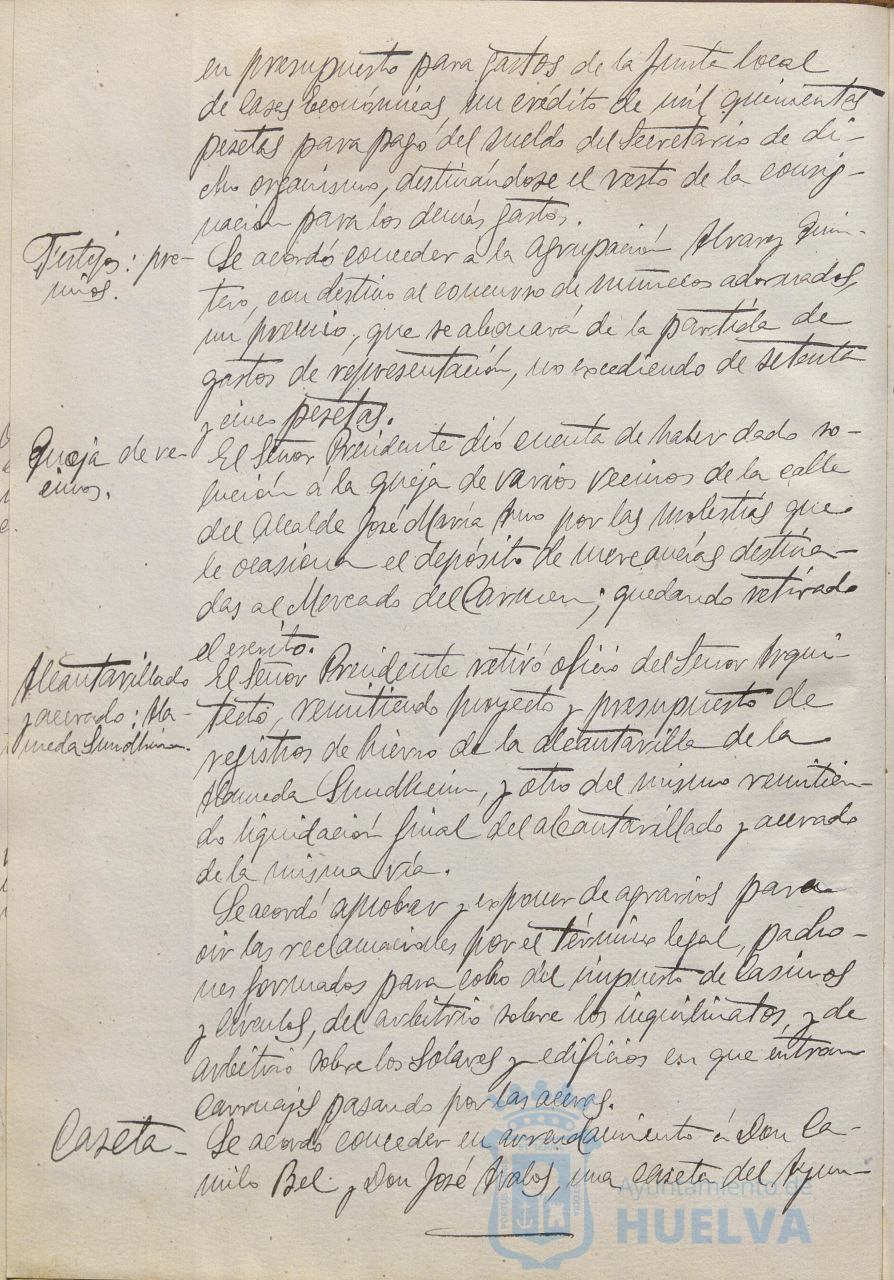 en presupuesto para gastos de la Junta local
de Casas Económicas, un crédito de mil quinientas
pesetas para pago del sueldo del Secretario de di-
cho organismo, destinándose el resto de la consig-
nación para los demás gastos.
Festejos: pre-
mios.
Se acordó conceder a la Agrupación Alvarez Quin-
tero, con destino al concurso de muñecos adornados,
un premio, que se abonará de la partida de
gastos de representación, no excediendo de setenta
y cinco pesetas.
Queja de ve-
cinos.
El Señor Presidente dió cuenta de haber dado so-
lución á la queja de varios vecinos de la calle
del Alcalde José María Amo por las molestias que
le ocasiona el depósito de mercancías destina-
das al Mercado del Carmen; quedando retirado
el escrito.
Alcantarillado
y acerado: Ala-
meda Sundheim.
El Señor Presidente retiró oficio del Señor Arqui-
tecto, remitiendo proyecto y presupuesto de
registros de hierro de la alcantarilla de la
Alameda Sundheim, y otro del mismo remitien-
do liquidación final del alcantarillado y acerado
de la misma vía.
Se acordó aprobar y exponer de agravios para
oir las reclamaciones por el término legal, padro-
nes formados para cobro del impuesto de Casinos
y Círculos, del arbitrio sobre los inquilinatos, y de
arbitrio sobre los Solares y edificios en que entran
carruajes pasando por las aceras.
Caseta-
Se acordó conceder en arrendamiento á Don Ca-
milo Bel y Don José Avalos, una caseta del Ayun-
Ayuntamiento de
HUELVA